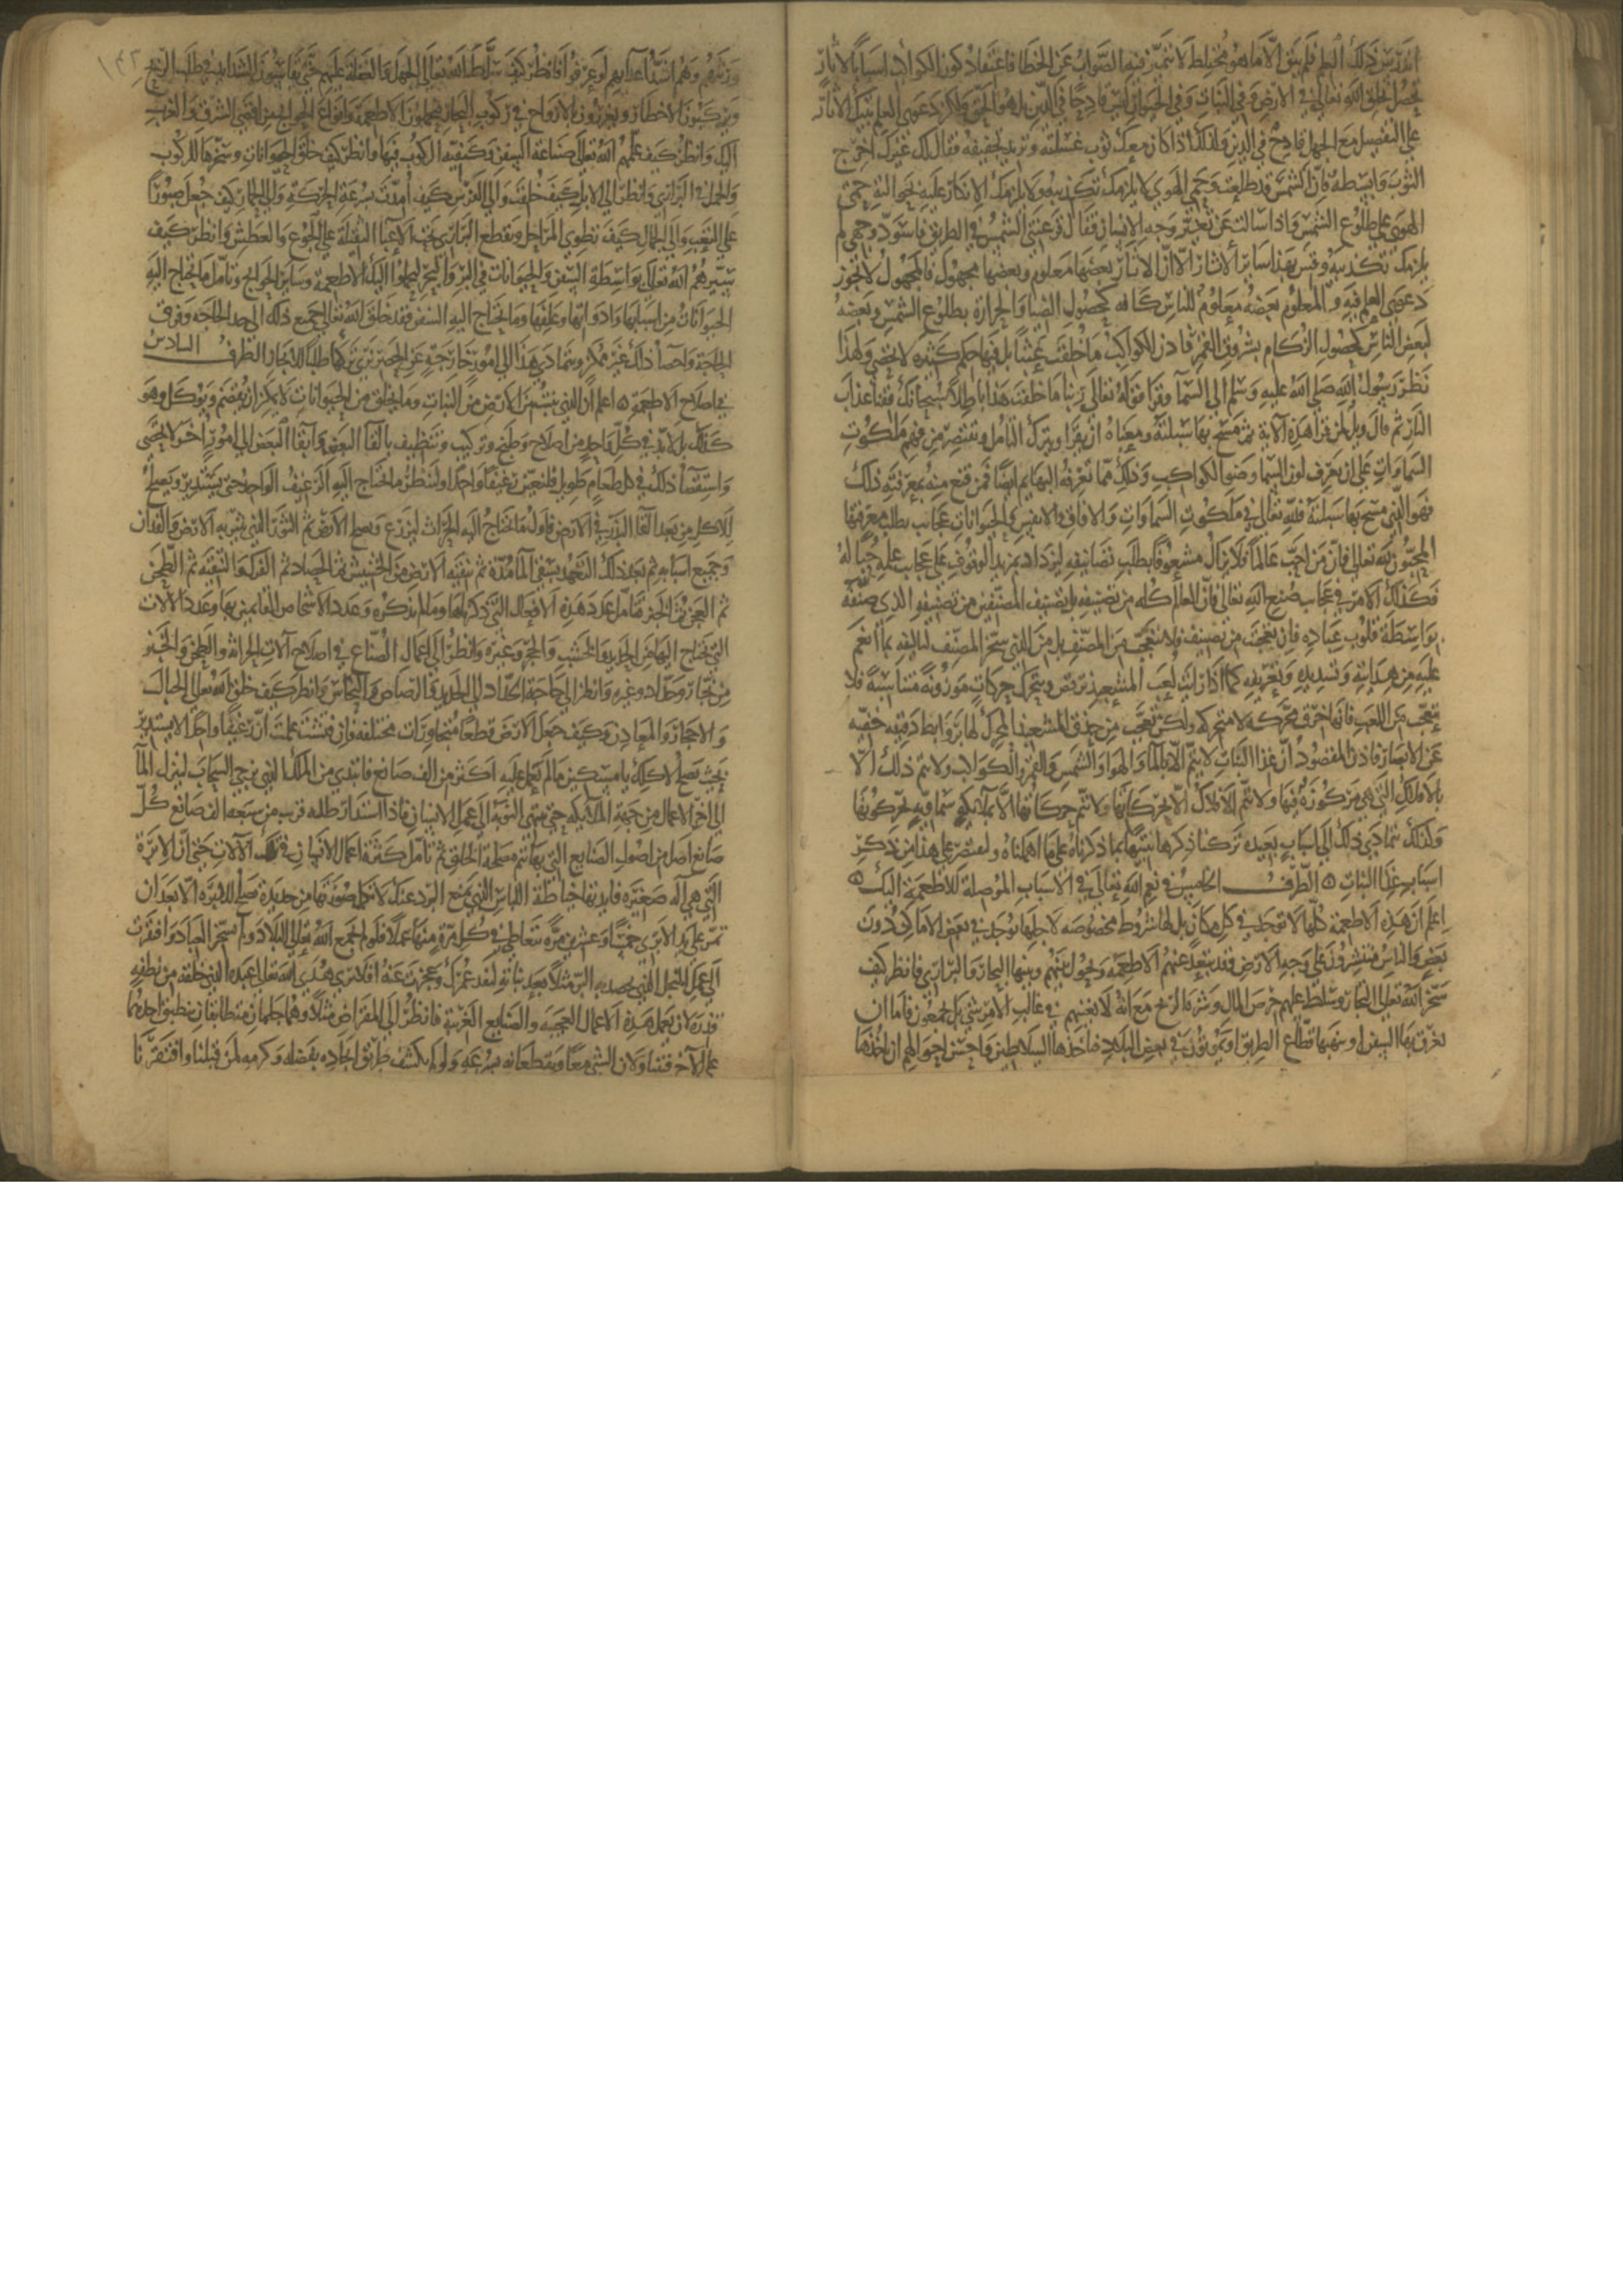 اندرس ذلك العلم فلم يبق الا ما هو مختلط لا يتميز فيه الصواب عن الخطا فاعتقاد كون الكواكب اسبابا لاثار
تحصل بخلق الله تعالى في الارض وفي النبات وفي الحيوان ليس قادحا في الدين بل هو الحق ولكن دعوى العلم بتلك الاثار
على التفصيل مع الجهل قادح في الدين ولذلك اذا كان معك ثوب غسلته وتريد تجفيفه فقال لك غيرك اخرج
الثوب وابسطه فان الشمس قد طلعت وحمي الهوى لا يلزمك تكذيبه ولا يلزمك الانكار عليه بحوالته حمى
الهوى على طلوع الشمس واذا سالت عن تغير وجه الانسان فقال قرعتني الشمس في الطريق فاسود وجهي لم
يلزمك تكذيبه وقس بهذا سائر الاثار الا ان الاثار بعضها معلوم وبعضها مجهول فالمجهول لا يجوز
دعوى العلم فيه والمعلوم بعضه معلوم للناس كافة كحصول الضيا والحرارة بطلوع الشمس وبعضه
لبعض الناس كحصول الزكام بشروق القمر فاذن الكواكب ما خلقت عبثا بل فيها حكم كثيرة لا تحصى ولهذا
نظر رسول الله صلى الله عليه وسلم الى السما وقرا قوله تعالى ربنا ما خلقت هذا باطلا سبحانك فقنا عذاب
النار ثم قال ويل لمن قرا هذه الآية ثم مسح بها سبلته ومعناه ان يقرا ويترك التامل ويقتصر من فهم ملكوت
السماوات على ان يعرف لون السما وضو الكواكب وذلك مما تعرفه البهايم ايضا فمن قنع منه بمعرفته ذلك
فهو الذي مسح بها سبلته فلله تعالى في ملكوت السماوات والافاق والانفس والحيوانات عجائب يطلب معرفتها
المحبون لله تعالى فان من احب عالما فلا يزال مشعوفا بطلب تصانيفه ليزداد بمزيد الوقوف على عجايب علمه حبا له
فكذلك الامر في عجايب صنع الله تعالى فان العالم كله من تصنيفه بل تصنيف المصنفين من تصنيفه الذي صنفه
بواسطة قلوب عباده فان تعجبت من تصنيف فلا تتعجب من المصنف بل من الذي سخر المصنف لتاليفه بما انعم
عليه من هدايته وتسديده وتعريفه كما اذا رايت لعب المشعبذ ترقص وتتحرك حركات موزونة متناسبة فلا
تتعجب من اللعب فانها خرق محركة لا متحركه ولكن تعجب من حذق المشعبذ المحرك لها بروابط دقيقه خفيه
عن الابصار فاذن المقصود ان غذا النبات لا يتم الا بالماء والهوا والشمس والقمر والكواكب ولا يتم ذلك الا
بالافلاك التي هي مركوزة فيها ولا تتم الافلاك الا بحركاتها ولا تتم حركاتها الا بملائكة سماوية يحركونها
وكذلك يتمادى ذلك الى اسباب بعيده تركنا ذكرها تنبيها بما ذكرناه على ما اهملناه ولنقتصر على هذا من ذكر
اسباب غذا النبات ه الطرف الخامس في نعم الله تعالى في الاسباب الموصلة للاطعمة اليك ه
اعلم ان هذه الاطعمة كلها لا توجد في كل مكان بل لها شروط مخصوصه لاجلها توجد في بعض الاماكن دون
بعض والناس منتشرون على وجه الارض وقد تبعد عنهم الاطعمة ويحول بينهم وبينها البحار والبراري فانظر كيف
سخر الله تعالى التجار وسلط عليهم حرص المال وشره الربح مع انه لا يغنيهم في غالب الامر شي بل يجمعون فاما ان
تغرق بها السفن او تنهبها قطاع الطريق او يموتون في بعض البلاد فياخذها السلاطين واحسن احوالهم ان ياخذها
ورثتهم وهم اشد اعدائهم لو عرفوا فانظر كيف سلط الله تعالى الجهل والغفلة عليهم حتى يقاسون الشدايد في طلب الربح
ويركبون الاخطار ويغررون بالارواح في ركوب البحار فيحملون الاطعمة وانواع الحوايج من اقصى الشرق والغرب
اليك وانظر كيف علمهم الله تعالى صناعة السفن وكيفية الركوب فيها وانظر كيف خلق الحيوانات وسخرها للركوب
والحمل في البراري وانظر الى الابل كيف خلقت والى الفرس كيف امدت بسرعة الحركة والى الحمار كيف جعل صبورا
على التعب والى الجمال كيف تطوي المراحل وتقطع البراري تحت الاعبا الثقيلة على الجوع والعطش وانظر كيف
سيرهم الله تعالى بواسطة السفن والحيوانات في البر والبحر ليحملوا اليك الاطعمة وساير الحوايج وتامل ما يحتاج اليه
الحيوانات من اسبابها وادواتها وعلفها وما يحتاج اليه السفن فقد خلق الله تعالى جميع ذلك الى حد الحاجه وفوق
الحاجة واحصا ذلك غير ممكن ويتمادى هذا الى امور خارجة عن الحصر نرى تركها طلبا للايجاز الطرف السادس
في اصلاح الاطعمة ه اعلم ان الذي ينبت من الارض من النبات وما يخلق من الحيوانات لا يمكن ان يقضم ويوكل وهو
كذلك بل لا بد في كل واحد من اصلاح وطبخ وتركيب وتنظيف بالقا البعض وابقا البعض الى امور اخر لا تحصى
واستقصا ذلك في كل طعام طويل فلنعين رغيفا واحدا ولننظر ما يحتاج اليه الرغيف الواحد حتى يستدير ويصلح
للاكل من بعد القا البذر في الارض فاول ما يحتاج اليه الحراث ليزرع ويصلح الارض ثم الثور الذي يثير به الارض والفدان
وجميع اسبابه ثم بعد ذلك التعهد بسقي الما مدة ثم تنقية الارض من الحشيش ثم الحصاد ثم الفرك والتنقية ثم الطحن
ثم العجن ثم الخبز فتامل عدد هذه الافعال التي ذكرناها وما لم نذكره وعدد الاشخاص القايمين بها وعدد الالات
التي يحتاج اليها من الحديد والخشب والحجر وغيره وانظر الى اعمال الصناع في اصلاح آلات الحراثة والطحن والخبز
من نجار وحداد وغيره وانظر الى حاجة الحداد الى الحديد والرصاص والنحاس وانظر كيف خلق الله تعالى الجبال
والاحجار والمعادن وكيف جعل الارض قطعا متجاورات مختلفة فان فتشت علمت ان رغيفا واحدا لا يستدير
بحيث يصلح لاكلك يا مسكين ما لم يعمل عليه اكثر من الف صانع فابتدي من الملك الذي يزجي السحاب لينزل الما
الى اخر الاعمال من جهة الملايكه حتى تنتهي النوبة الى عمل الانسان فاذا استدار طلبه قريب من سبعة الف صانع كل
صانع اصل من اصول الصنايع التي بها تتم مصلحة الخلق ثم تامل كثرة اعمال الانسان في تلك الآلات حتى ان الابرة
التي هي آله صغيره فايدتها خياطة اللباس الذي يمنع البرد عنك لا تكمل صورتها من حديدة تصلح للابرة الا بعد ان
تمر على يد الابري خمسا وعشرين مرة يتعاطى في كل مرة منها عملا فلو لم يجمع الله تعالى البلاد ولم يسخر العباد وافتقرت
الى عمل المنجل الذي يحصد به البر مثلا بعد نباته لنفد عمرك وعجزت عنه افلا ترى هدي الله تعالى عبده الذي خلقه من نطفة
قذرة لان يعمل هذه الاعمال العجيبة والصنايع الغريبة فانظر الى المقراض مثلا وهما جلمان متطابقان ينطبق احدهما
على الآخر فتناولان الشي معا ويقطعانه بسرعة ولو لم يكشف طريق ايجاده بفضله وكرمه لمن قبلنا وافتقرنا